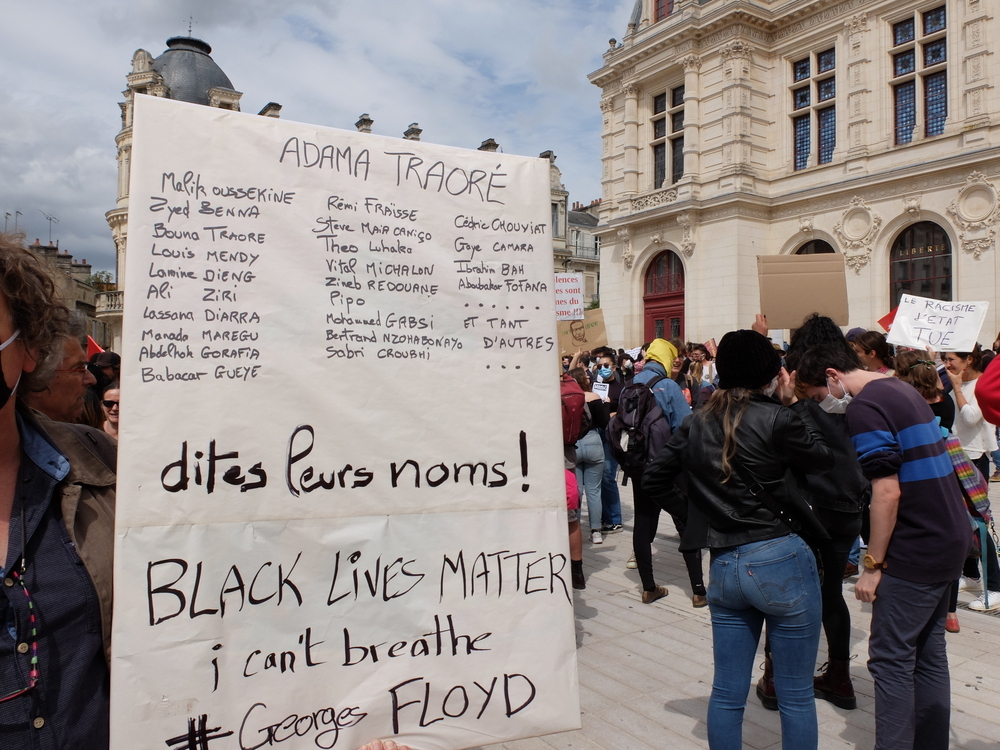 ADAMA TRAORÉ
Malik OUSSEKINE
Zyed BENNA
Bouna TRAORE
Louis MENDY
Lamine DIENG
Ali ZIRI
Lassana DIARRA
Manada MAREGU
Abdelhak GORAFIA
Babacar GUEYE
Rémi FRAÏSSE
Steve MAIA CANIÇO
Theo Luhaka
Vital MICHALON
Zineb REDOUANE
Pipo
Mohammed GABSI
Bertrand NZOHABONAYO
Sabri CHOUBHI
Cédric CHOUVIAT
Gaye CAMARA
Ibrahim BAH
Aboubakar FOFANA
.....
ET TANT
D'AUTRES
...
dites leurs noms!
BLACK LIVES MATTER
i can't breathe
# Georges FLOYD
LIBERTE
LE RACISME
d'ETAT
TUE